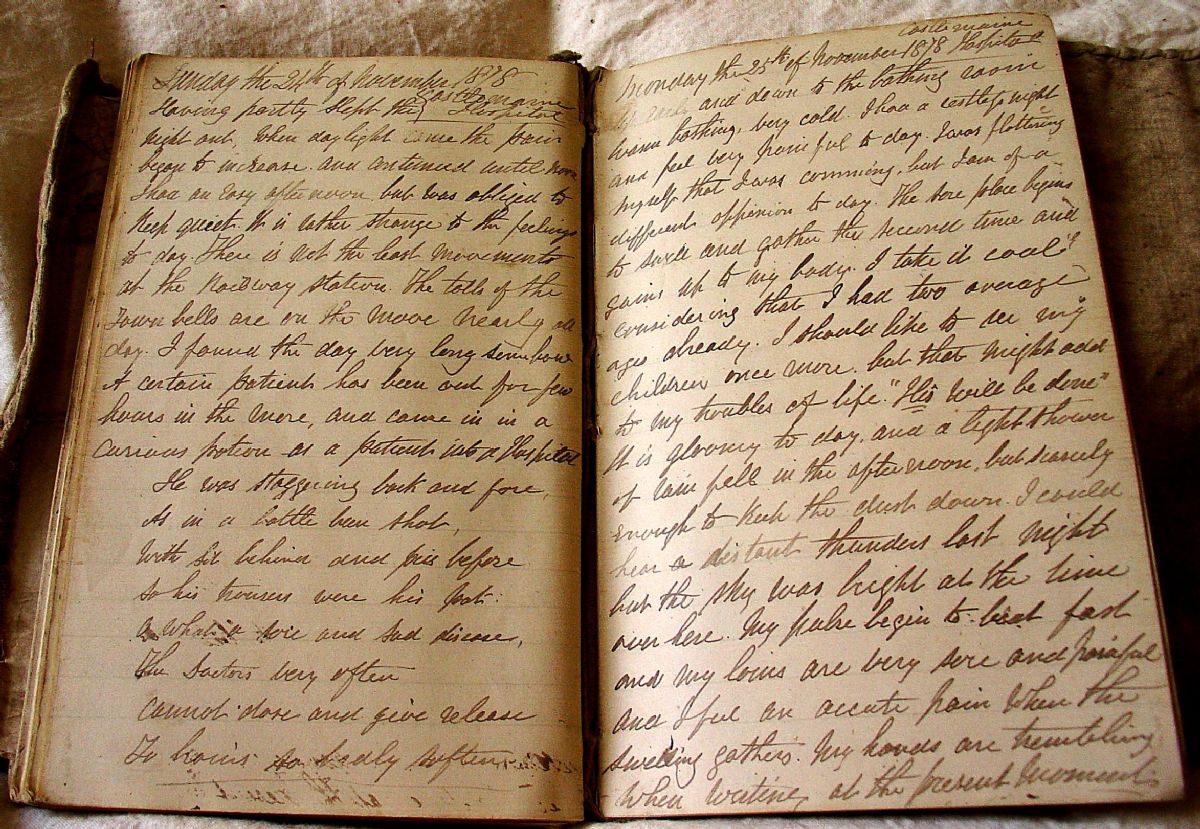 Sunday the 24th of November 1878
Castlemaine
Having partly slept the Hospital
night out, when daylight came the pain
began to increase and continued until noon
I had an easy afternoon, but was obliged to
keep quiet. It is rather strange to the feelings
to day. There is not the least movements
at the Railway station. The tolls of the
Town bells are on the move nearly all
day. I found the day very long somehow
A certain patient has been out for few
hours in the more, and came in in a
Curious potion as a patient into a Hospital
He was staggering back and fore,
As in a battle bun shot,
With sit behind and pis before
So his trousers were his pot:
What a soie and sad disease,
The Doctors very often
Cannot dose and give release
To brains so badly soften
Castlemaine
Monday the 25th of November 1878 Hospital
and down to the bathing room
warm bathing, very cold. I had a restless night
and feel very painful to day. I was flattering
myself that I was comming, but I am of a
different oppinion to day. The sore place begins
to swell and gather the second time and
gains up to my body. I take it cool
considering that I had two average
ages already. I should like to see my
children once more, but that might add
to my troubles of life. "His will be done"
It is gloomy to day, and a light shower
of rain fell in the afternoon, but scarcely
enough to keek the dust down. I could
hear a distant thunders last night
but the sky was bright at the time
over here. My pulse begin to beat fast
and my loins are very sore and painful
and I feel an accute pain when the
swelling gathers. My hands are trembling
when writing at the present moment